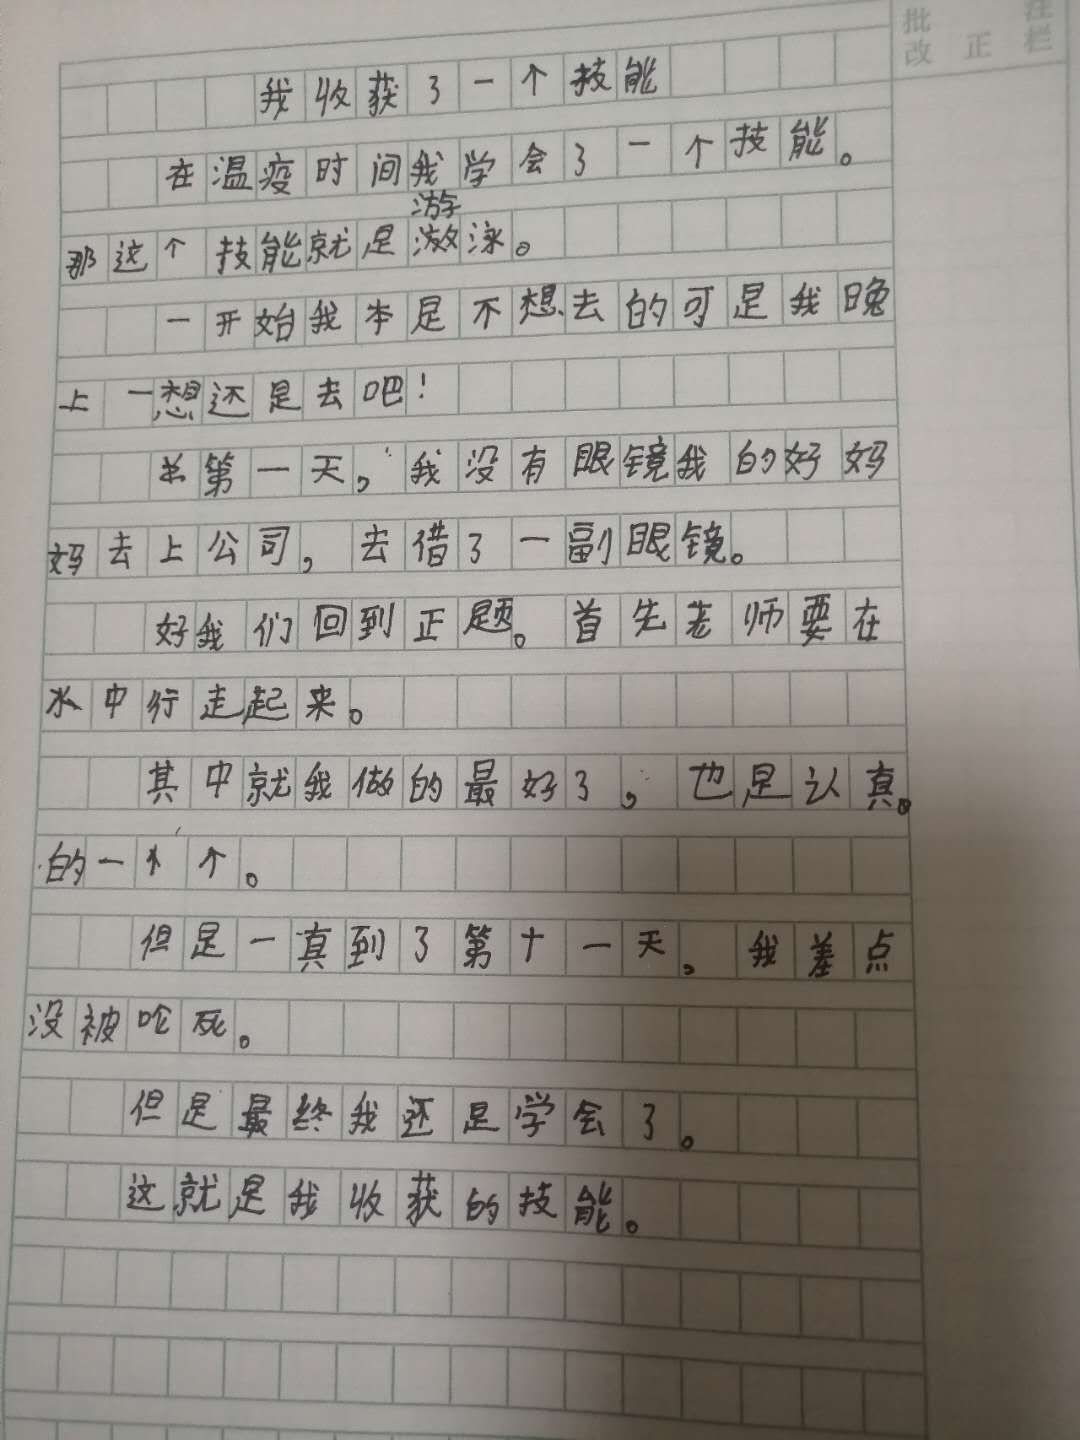 批注
改正栏
我收获了一个技能
在温疫时间我学会了一个技能。
游
那这个技能就是泳。
一开始我本是不想去的可是我晚
上一想还是去吧！
第一天，我没有眼镜我的好妈
妈去上公司，去借了一副眼镜。
好我们回到正题。首先老师要在
水中行走起来。
其中就我做的最好了，也是认真。
的一个个。
但是一真到了第十一天。我差点
没被呛死。
但是最终我还是学会了。
这就是我收获的技能。